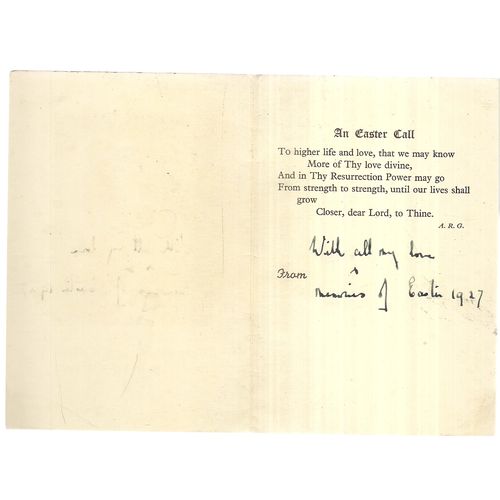 An Easter Call
To higher life and love, that we may know
More of Thy love divine,
And in Thy Resurrection Power may go
From strength to strength, until our lives shall
grow
Closer, dear Lord, to Thine.
A. R. G.
With all my love
From
memories of Easter 1927